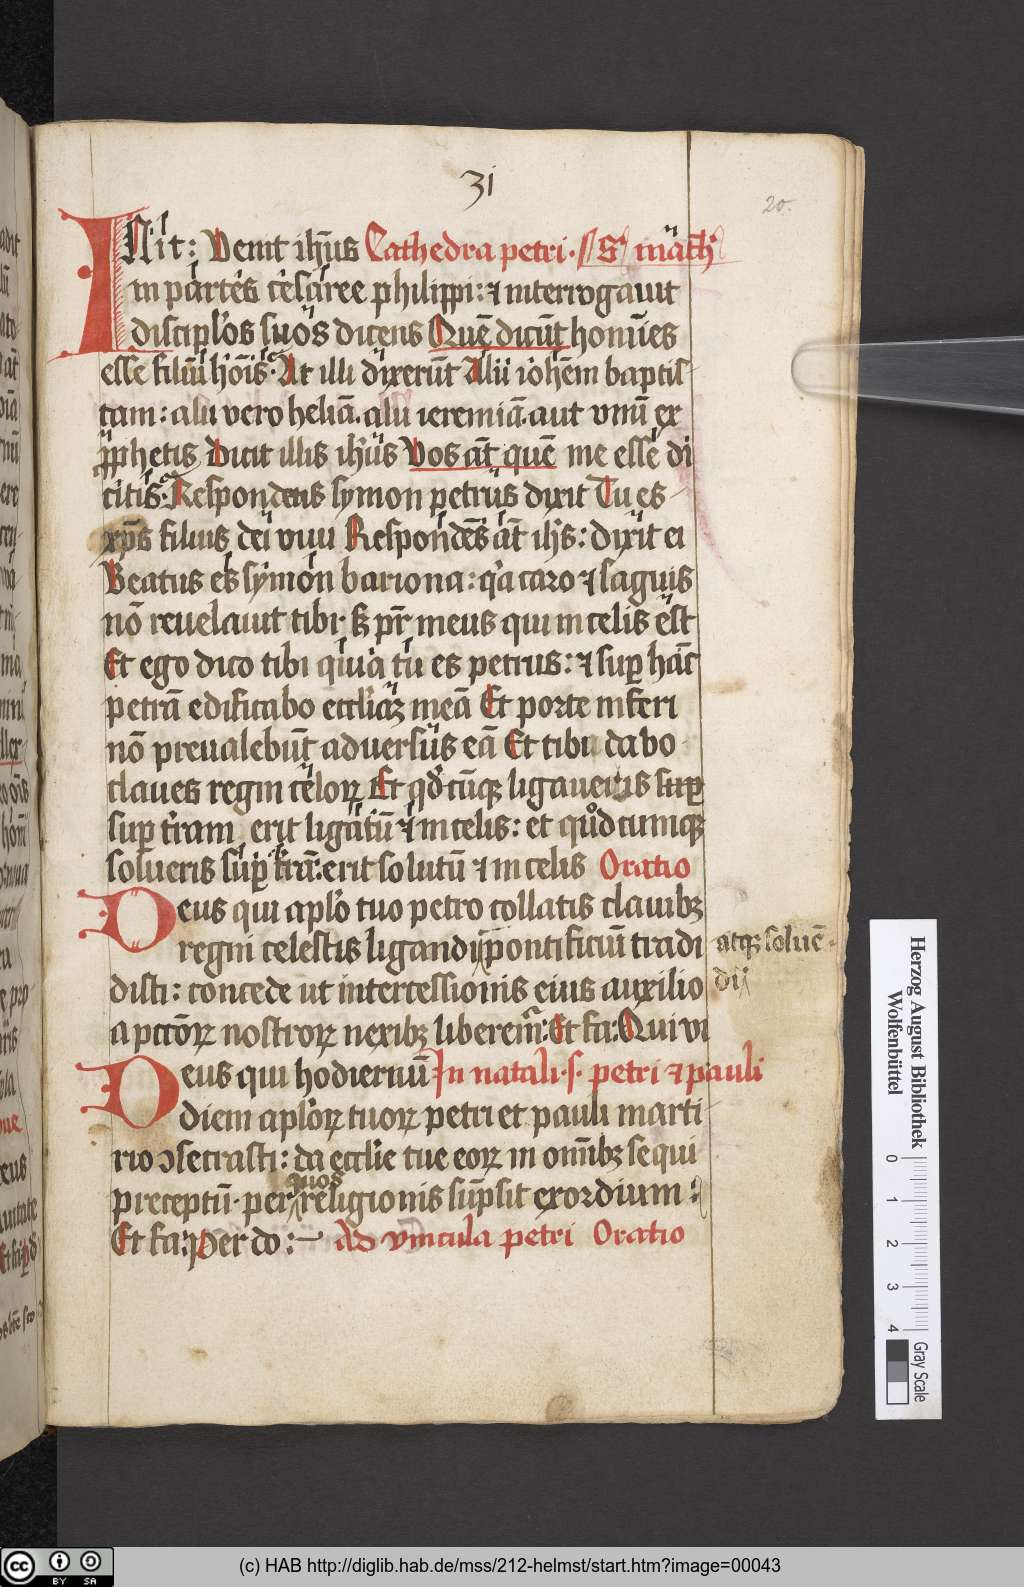 31
20.
INit: Venit ih̄us Cathedra petri· S mach
in partes cesaree philippi: ⁊ interrogauit
discipl'os suos dicens Quē dicūt homīes
esse filiū hōis· At illi dixerūt Alii iohēm baptis-
tam: alii vero heliā. alii ieremiā. aut vnū ex
ꝓphetis Dicit illis ih̄us Vos aūt quē me esse di
citis· Respondens symon petrus dixit Tu es
xp̄s filius dei viui Respondēs aūt ih̄s: dixit ei
Beatus es symon bariona: q'a caro ⁊ saguis
nō reuelauit tibi· sꝫ pr̄ meus qui in celis est
Et ego dico tibi quia tu es petrus: ⁊ suꝑ hāc
petrā edificabo eccl'iaꝫ meā Et porte inferi
nō preualebūt aduersus eā Et tibi dabo
claues regni celoꝝ Et qd'cūqꝫ ligaueris suꝑ
suꝑ t'ram erit ligatū ⁊ in celis: et quodcumqꝫ
solueris suꝑ t'rā: erit solutū ⁊ in celis Oratio
Deus qui apl'o tuo petro collatis clauibꝫ
regni celestis ligandi pontificiū tradi
atqꝫ soluē-
di
disti: concede ut intercessionis eius auxilio
a pctōꝝ nostroꝝ nexibꝫ liberem̄: Et fa: Qui vi
Deus qui hodiernū In natali· s· petri ⁊ pauli
diem apl'oꝝ tuoꝝ petri et pauli marti-
rio ↄsecrasti: da eccl'ie tue eoꝝ in omībꝫ sequi
quos
preceptū· per religionis sūpsit exordium:
Et fa: Per do: Ad vincula petri Oratio
Herzog August Bibliothek
Wolfenbüttel
0 1 2 3 4
Gray Scale
cc BY SA
(c) HAB http://diglib.hab.de/mss/212-helmst/start.htm?image=00043